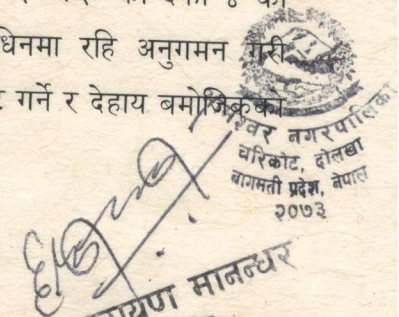 धिनमा रहि अनुगमन गरी
गर्ने र देहाय बमोजिकका
श्वर नगरपालिका
चरिकोट, दोलखा
बागमती प्रदेश, नेपाल
२०७३
मानन्धर